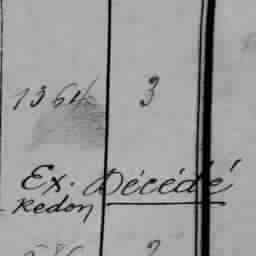 1364 3
Ex. Décédé
Redon
2